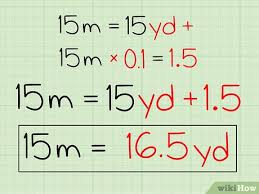 15m = 15yd +
15m × 0.1 = 1.5
15m = 15yd + 1.5
15m = 16.5yd
wikiHow